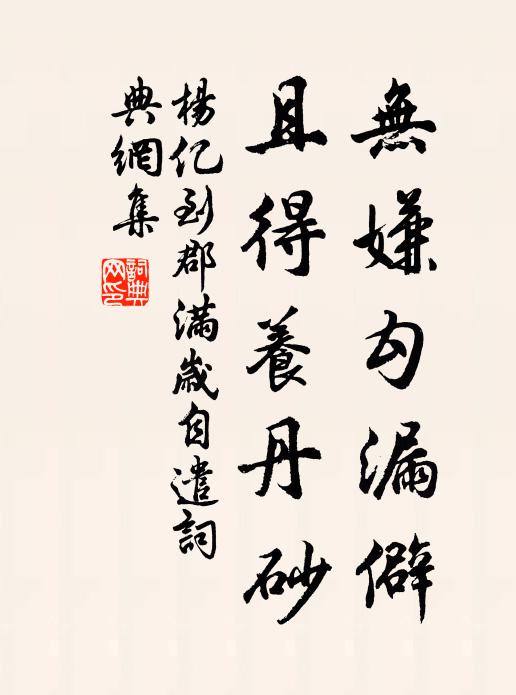 無嫌勾漏僻
且得養丹砂
楊億到郡滿歲自遣詞
典網集
詞典網印